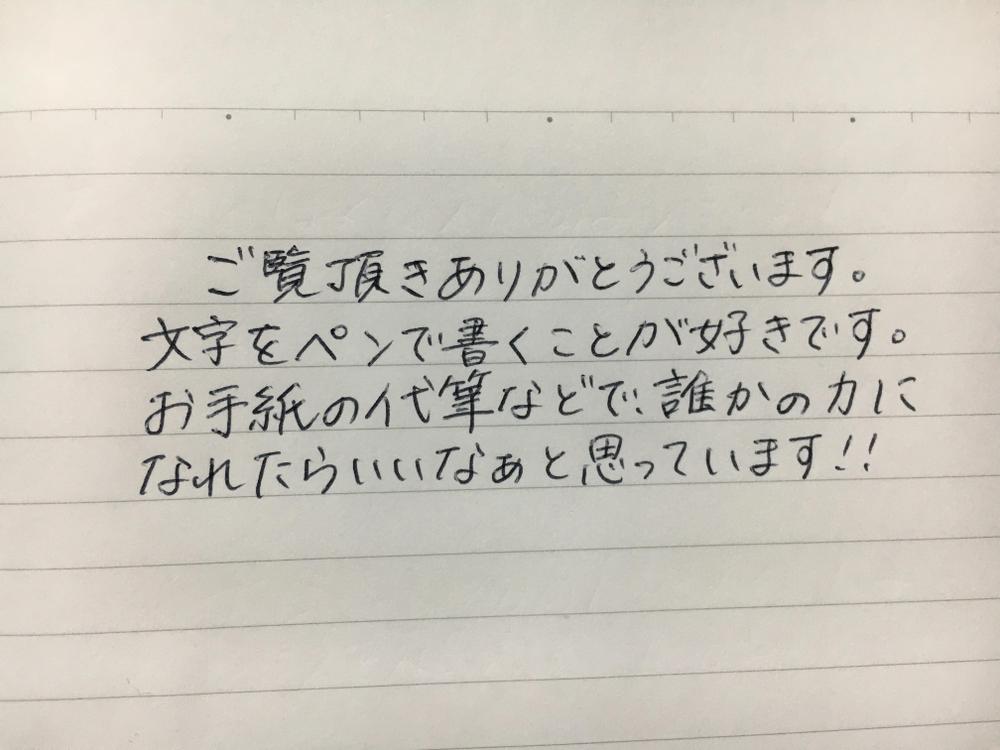 ご覧頂きありがとうございます。
文字をペンで書くことが好きです。
お手紙の代筆などで、誰かの力に
なれたらいいなぁと思っています!!